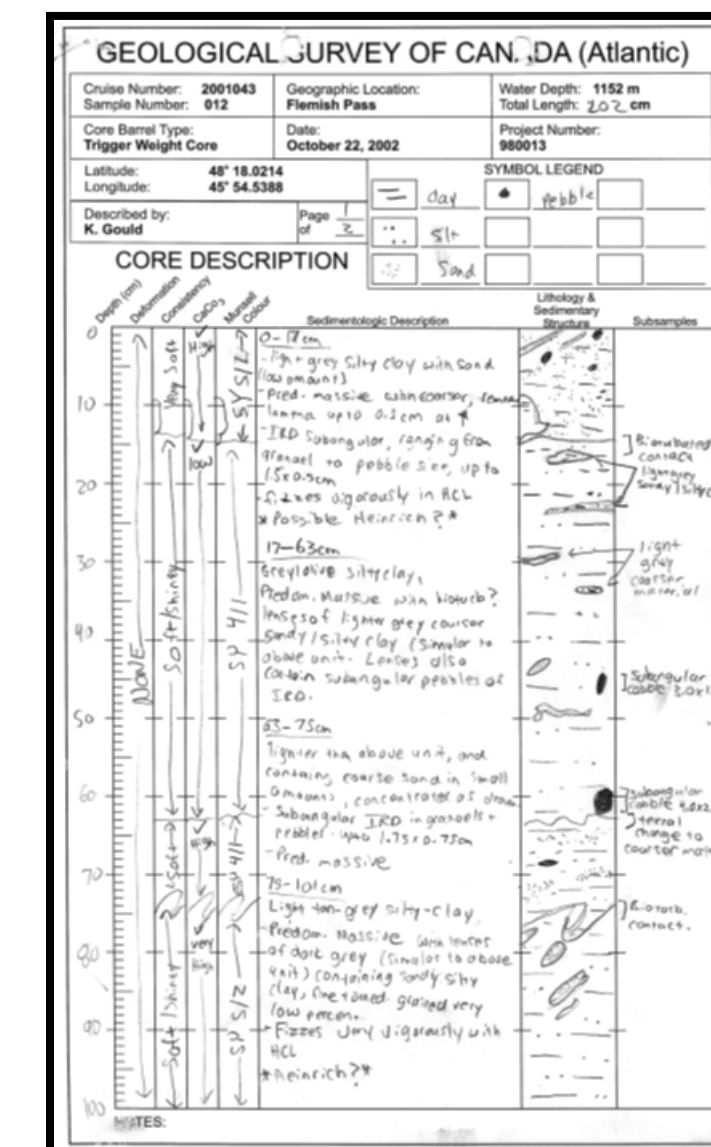 GEOLOGICAL SURVEY OF CANADA (Atlantic)
Cruise Number: 2001043
Sample Number: 012
Geographic Location:
Flemish Pass
Water Depth: 1152 m
Total Length: 202 cm
Core Barrel Type:
Trigger Weight Core
Date:
October 22, 2002
Project Number:
980013
Latitude: 48° 18.0214
Longitude: 45° 54.5388
SYMBOL LEGEND
clay
pebble
silt
sand
Described by:
K. Gould
Page 1
of 2
CORE DESCRIPTION
Depth (cm)
Deformation
Consistency
CaCo3
Munsell
Colour
Sedimentologic Description
Lithology &
Sedimentary
Structure
Subsamples
0
10
20
30
40
50
60
70
80
90
100
NONE
Very Soft
Soft/Shiny
Soft
Soft/Shiny
High
low
High
very
High
5Y 5/2
5Y 4/1
5Y 4/1
5Y 5/2
-light grey silty clay with sand
(low amount)
-Pred. massive with coarser,
lamina up to 0.5cm at
-IRD Subangular, ranging from
granuel to pebble size, up to
1.5x0.5cm
-fizzes vigorously in HCL
*Possible Heinrich?*
17-63cm
Grey/olive silty clay,
Predom. Massive with bioturb?
lenses of lighter grey courser
sandy/silty clay (simular to
above unit. Lenses also
contain subangular pebbles of
IRD.
63-75cm
lighter than above unit, and
containg coarse sand in small
amounts, concentrated as
-Subangular IRD in granuels +
pebbles - upto 1.75x0.75cm
-Pred. massive
75-101cm
Light tan-grey silty-clay,
-Predom. Massive with lenses
of dark grey (simular to above
unit) containing sandy silty
clay, fine grained very
low percen.
-Fizzes very vigorously with
HCL
*Heinrich?*
Bioturbated
contact
light grey
sandy/silty
light
grey
coarser
material
Subangular
cobble 3.0x1
subangular
cobble
change to
coarser
Bioturb.
contact.
NOTES: